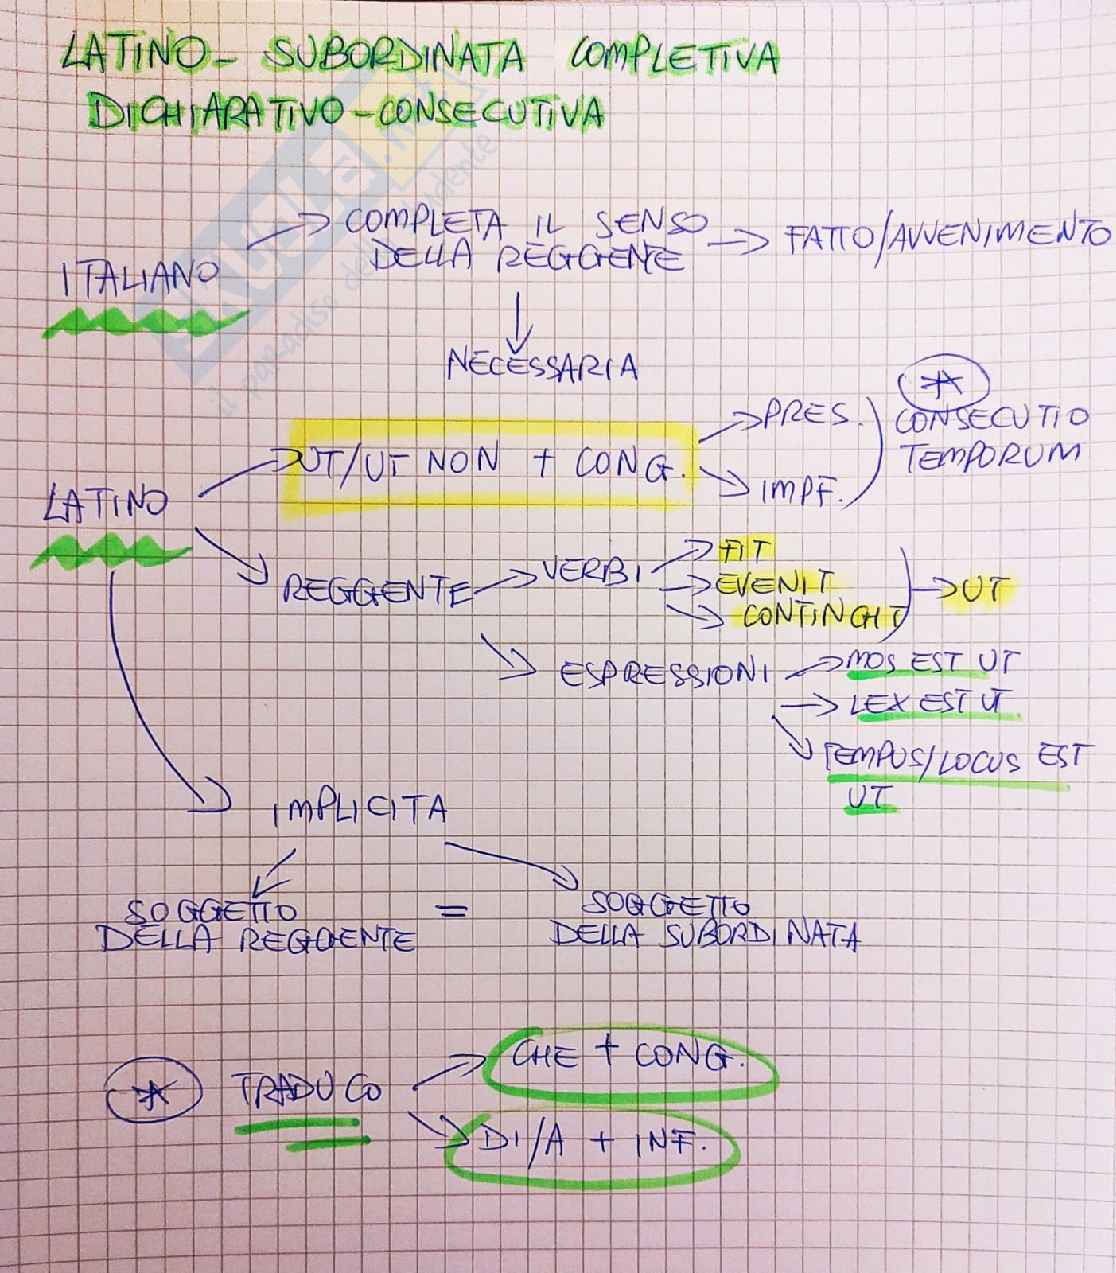 LATINO - SUBORDINATA COMPLETIVA
DICHIARATIVO-CONSECUTIVA
ITALIANO
COMPLETA IL SENSO
DELLA REGGENTE
FATTO/AVVENIMENTO
NECESSARIA
LATINO
UT/UT NON + CONG.
PRES.
IMPF.
*
CONSECUTIO
TEMPORUM
REGGENTE
VERBI
FIT
EVENIT
CONTINGIT
UT
ESPRESSIONI
MOS EST UT
LEX EST UT
TEMPUS/LOCUS EST
UT
IMPLICITA
SOGGETTO
DELLA REGGENTE
=
SOGGETTO
DELLA SUBORDINATA
* TRADUCO
CHE + CONG.
DI/A + INF.